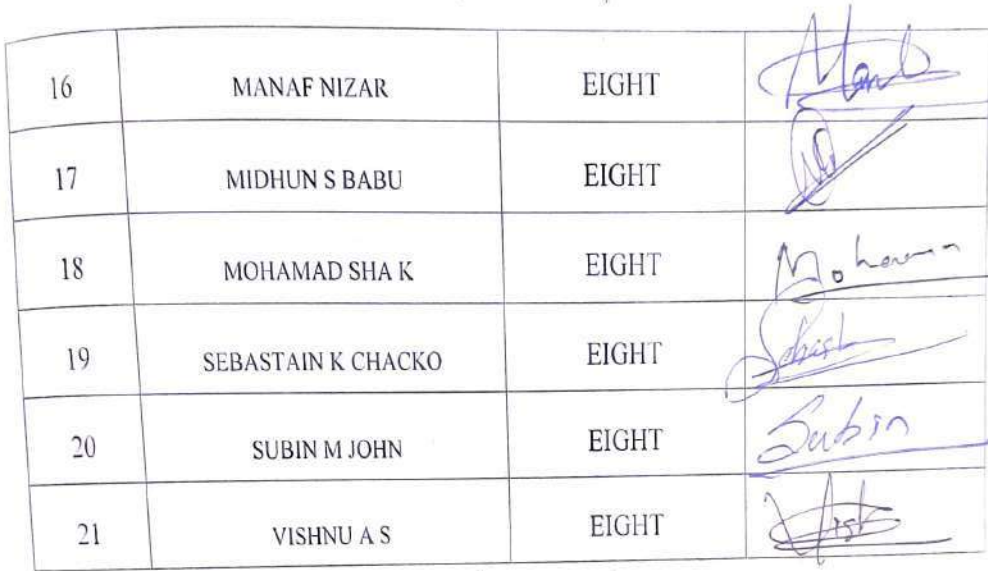 16 MANAF NIZAR EIGHT
17 MIDHUN S BABU EIGHT
18 MOHAMAD SHA K EIGHT
19 SEBASTAIN K CHACKO EIGHT
20 SUBIN M JOHN EIGHT Subin
21 VISHNU A S EIGHT